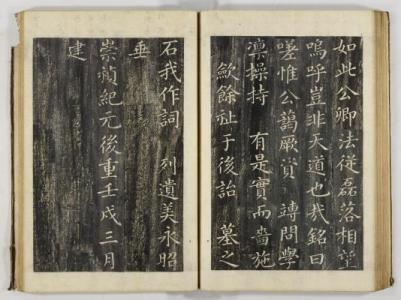 如此公卿法従磊落相望
嗚乎豈非天道也哉銘曰
嗟惟公蔼厥資 問學
凛操持 有是實而嗇施
歛餘祉于後詒 墓之
石我作詞 列遺美永昭
垂
崇禎紀元後重壬戌三月
建